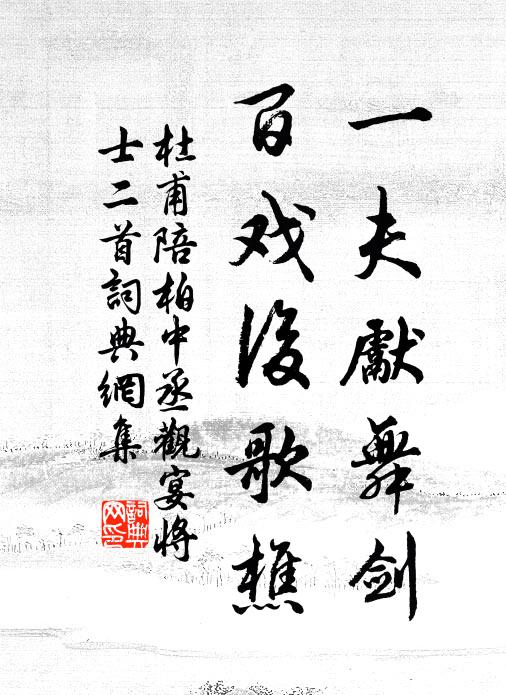 一夫獻舞剑
百戏後歌樵
杜甫陪柏中丞觀宴將
士二首詞典網集
詞典
网印